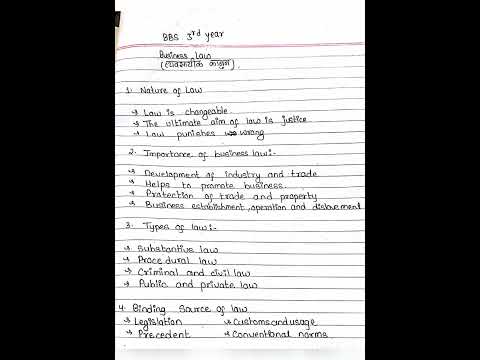 BBS 3rd year
Business Law
(व्यवसायीक कानुन)
1. Nature of Law
→ Law is changeable
→ The ultimate aim of law is justice
→ Law punishes wrong
2. Importance of business law:-
→ Development of industry and trade
→ Helps to promote business
→ Protection of trade and property
→ Business establishment, operation and
3. Types of law:-
→ Substantive law
→ Procedural law
→ Criminal and civil law
→ Public and private law
4. Binding Source of law
→ Legislation → Customs and usage
→ Precedent → Conventional norms